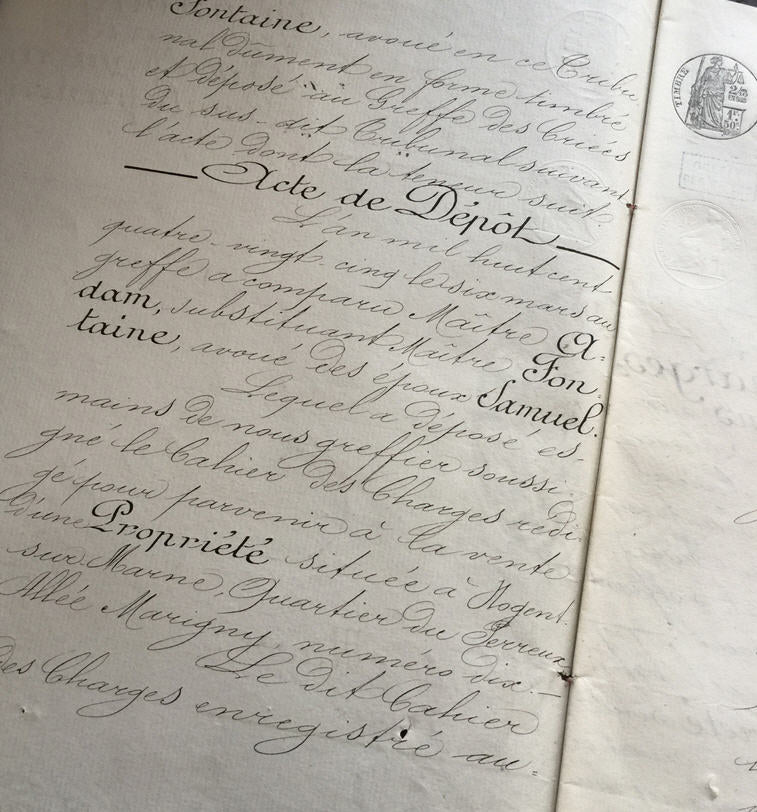 Fontaine, avoué en ce Tribu
nal dûment en forme timbré
et déposé au Greffe des Criées
du sus-dit Tribunal suivant
l'acte dont la teneur suit.
— Acte de Dépôt —
L'an mil huit cent
quatre-vingt-cinq le six mars au
greffe a comparu Maître A-
dam, substituant Maître Fon-
taine, avoué des époux Samuel.
Lequel a déposé ès-
mains de nous greffier soussi-
gné le Cahier des Charges rédi-
gé pour parvenir à la vente
d'une Propriété située à Nogent-
sur Marne, Quartier du Perreux,
Allée Marigny, numéro dix.—
Le dit Cahier
des Charges enregistré au-
TIMBRE